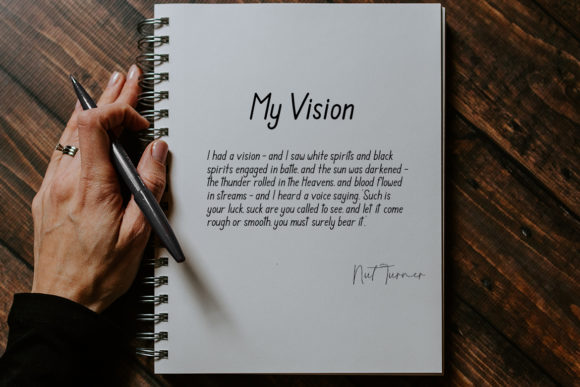 My Vision
I had a vision - and I saw white spirits and black
spirits engaged in battle. and the sun was darkened -
the thunder rolled in the Heavens. and blood flowed
in streams - and I heard a voice saying. Such is
your luck. suck are you called to see. and let it come
rough or smooth. you must surely bear it.
Nut Turner